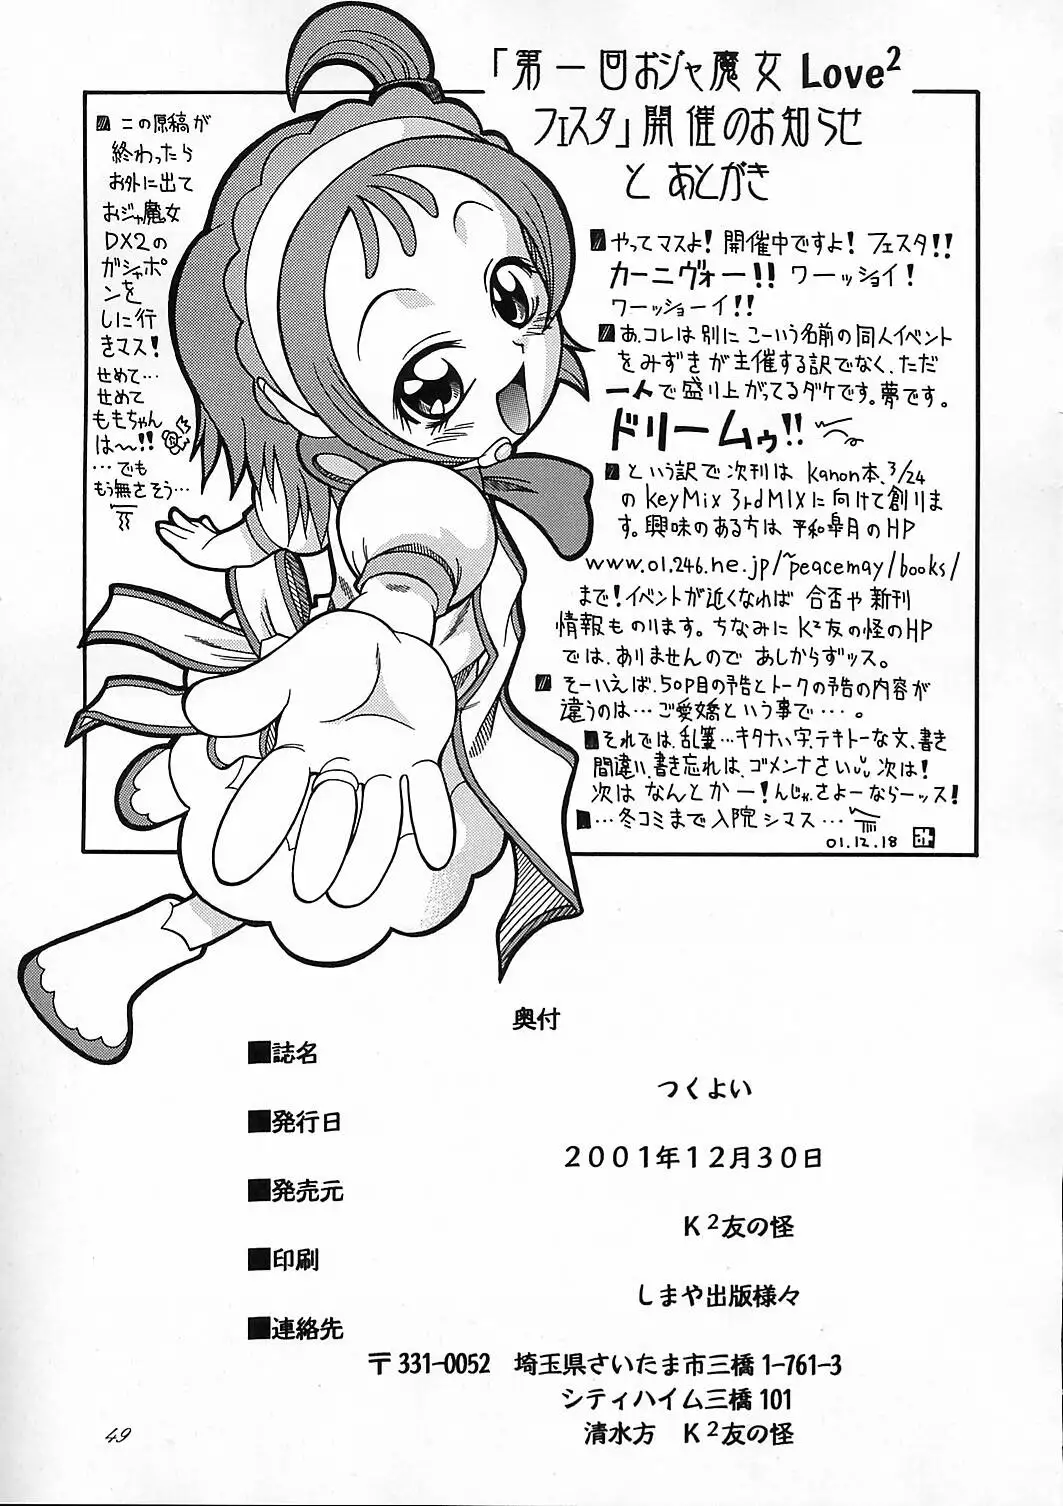 「第一回おジャ魔女 Love²
フェスタ」開催のお知らせ
と あとがき
■やってマスよ！開催中ですよ！フェスタ！！
カーニヴォー！！ワーッショイ！
ワーッショーイ！！
■あ、コレは別にこーいう名前の同人イベント
をみずきが主催する訳でなく、ただ
一人で盛り上がってるダケです。夢です。
ドリームゥ！！
■という訳で次刊はKanon本、3/24
のKeyMix 3rdMIXに向けて創りま
す。興味のある方は 平和皐月のHP
www.01.246.ne.jp/~peacemay/books/
まで！イベントが近くなれば 合否や新刊
情報ものります。ちなみにK²友の怪のHP
では、ありませんので あしからずッス。
■そーいえば、50P目の予告とトークの予告の内容が
違うのは…ご愛嬌という事で…。
■それでは、乱筆…キタナい字、テキトーな文、書き
間違い、書き忘れは、ゴメンナさい 次は！
次は なんとかー！んじゃ、さよーならーッス！
■…冬コミまで入院シマス…
01.12.18
■この原稿が
終わったら
お外に出て
おジャ魔女
DX2の
ガシャポ
ンを
しに行
きマス！
せめて…
せめて
ももちゃん
は〜！！
…でも
もう無さそう…
奥付
■誌名
つくよい
■発行日
２００１年１２月３０日
■発売元
Ｋ²友の怪
■印刷
しまや出版様々
■連絡先
〒331-0052　埼玉県さいたま市三橋1-761-3
シティハイム三橋101
清水方　Ｋ²友の怪
49